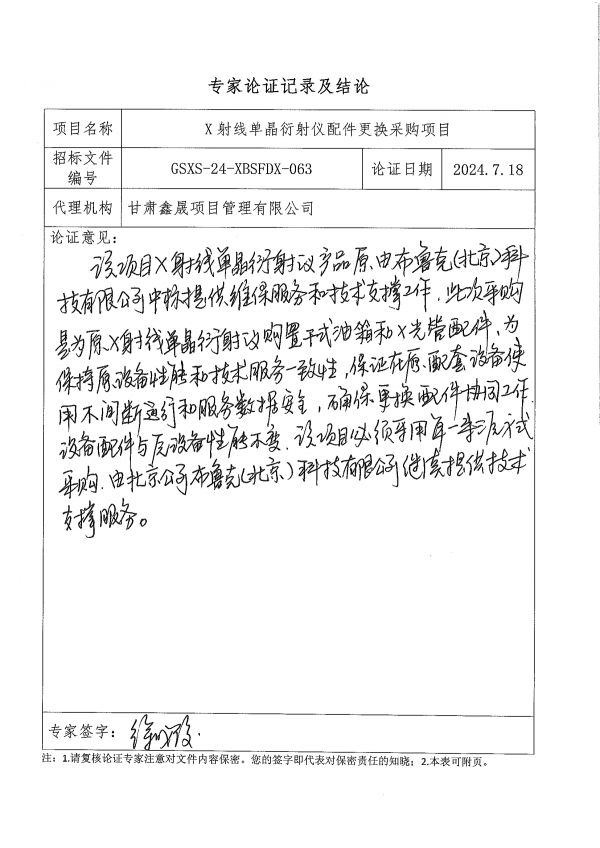 专家论证记录及结论
项目名称 X射线单晶衍射仪配件更换采购项目
招标文件编号 GSXS-24-XBSFDX-063 论证日期 2024.7.18
代理机构 甘肃鑫晟项目管理有限公司
论证意见：
该项目X射线单晶衍射议产品原由布鲁克(北京)科
技有限公司中标提供维保服务和技术支撑工作，此次采购
是为原X射线单晶衍射议购置干式油箱和X光管配件，为
保持原设备性能和技术服务一致性，保证在原配套设备使
用不间断运行和服务数据安全，确保更换配件协同工作
设备配件与原设备性能不变．该项目必须采用单一来源方式
采购．由北京公司布鲁克(北京)科技有限公司继续提供技术
支撑服务。
专家签字：徐
注：1.请复核论证专家注意对文件内容保密。您的签字即代表对保密责任的知晓；2.本表可附页。